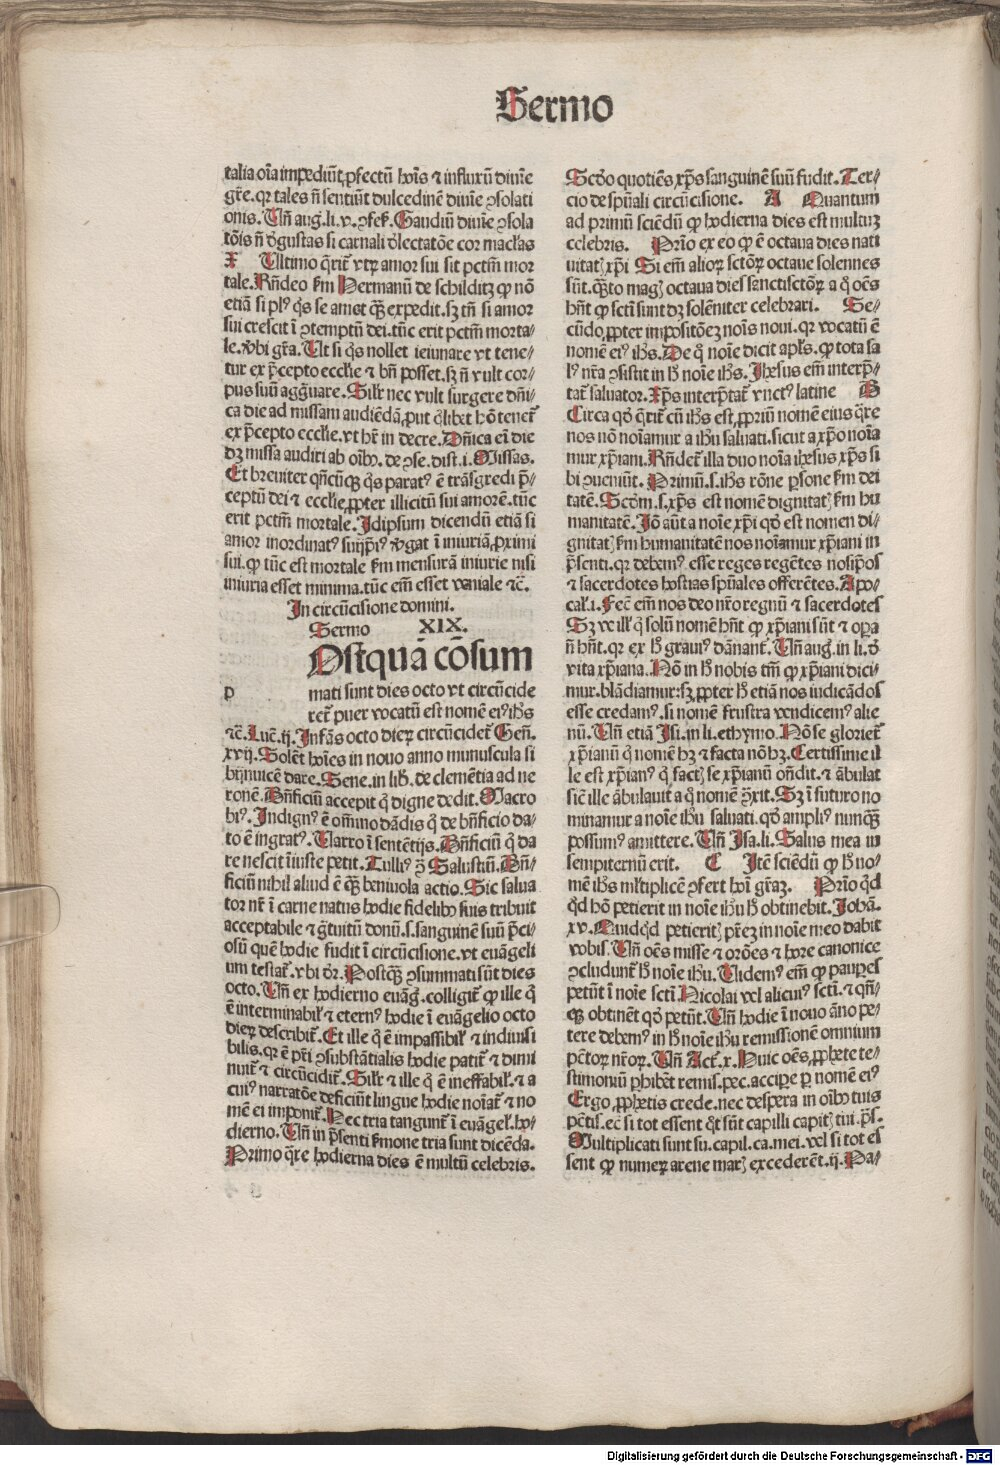 Sermo
talia oīa impediūt ꝓfectū hoīs ⁊ influxū diuīe
grē. qꝛ tales ñ sentiūt dulcedinē diuīe ꝯsolati
onis. Vñ aug. li. v. ꝯfeſ. Gaudiū diuīe ꝯsola
tōis ñ d̾gustas si carnali d̾lectatōe cor maclas
X Ultimo q̄rit̄ vtꝝ amor sui sit pctm̄ mor
tale. Rñdeo ẜm Hermanū de schilditz ꝙ nō
etiā si plꝰ q̇s se amet q̄ꝫ expedit. sꝫ tñ si amor
sui crescit ī ꝯtemptū dei. tūc erit pctm̄ morta⸗
le. v̾bi gr̄a. Ut si q̇s nollet ieiunare vt tene⸗
tur ex p̄cepto ecclie ⁊ bñ posset. sꝫ ñ vult cor⸗
pus suū agguare. Silr̄ nec vult surgere dñi⸗
ca die ad missam audiēdā, put q̇libet hō tenet̄
ex p̄cepto ecclie. vt hr̄ in decre. Dñica eī die
dꝫ missa audiri ab oībꝰ. de ꝯse. dist. i. Missas.
Et breuiter qñcūqꝫ q̇s paratꝰ ē trāsgredi p̄⸗
ceptū dei ⁊ ecclie ꝓpter illicitū sui amorē. tūc
erit pctm̄ mortale. Idipsum dicendū etiā si
amor inordinatꝰ suijp̄iꝰ v̾gat ī iniuriā ꝓximi
sui. ꝙ tūc est mortale ẜm mensurā iniurie nisi
iniuria esset minima. tūc em̄ esset veniale ⁊c̄.
In circūcisione domini.
Sermo XIX.
Ostquā cōsum
p mati sunt dies octo vt circūcide
ret̄ puer vocatū est nomē eiꝰ ihs
⁊c̄. Luc̄. ij. Infās octo dieꝝ circūcidet̄ Geñ.
xvij. Solēt hoīes in nouo anno munuscula si
bijnuicē dare. Sene. in lib. de clemētia ad ne
ronē. Bñficiū accepit q̇ digne dedit. Macro
biꝰ. Indignꝰ ē om̄ino dādis q̇ de bñficio da⸗
to ē ingratꝰ. Varro ī sentētijs. Bñficiū q̇ da
re nescit īiuste petit. Tulliꝰ ꝯ̄ Salustiū. Bñ⸗
ficiū nihil aliud ē q̄ꝫ beniuola actio. Sic salua
tor nr̄ ī carne natus hodie fidelibꝰ suis tribuit
acceptabile ⁊ g̾tuitū donū. s. sanguinē suū p̄ci⸗
osū quē hodie fudit ī circūcisione. vt euāgeli
um testat̄. vbi dr̄. Postq̄ꝫ ꝯsummati sūt dies
octo. Vñ ex hodierno euāg̾. colligit̄ ꝙ ille q̇
ē interminabilꝭ ⁊ eternꝰ hodie ī euāgelio octo
dieꝝ describit̄. Et ille q̇ ē impassibilꝭ ⁊ indiuisi
bilis. qꝛ ē pr̄i ꝯsubstātialis hodie patit̄ ⁊ dimi
nuit̄ ⁊ circūcidit̄. Silr̄ ⁊ ille q̇ ē ineffabilꝭ. ⁊ a
cuiꝰ narratōe deficiūt lingue hodie noīat̄ ⁊ no
mē ei imponit̄. Nec tria tangunt̄ ī euāgel. ho⸗
dierno. Vñ in p̄senti ẜmone tria sunt dicēda.
Primo q̄re hodierna dies ē multū celebris.
Scd̄o quotiēs xp̄s sanguinē suū fudit. Ter⸗
cio de spūali circūcisione. A Quantum
ad primū sciēdū ꝙ hodierna dies est multuꝫ
celebris. Prīo ex eo ꝙ ē octaua dies nati
uitatꝭ xp̄i Si em̄ alioꝝ sctōꝝ octaue solennes
sūt. q̄ꝫto magꝭ octaua dies sanctisctōꝝ a q̇ oēs
hñt ꝙ scti sunt dꝫ solēniter celebrari. Se⸗
cūdo ꝓpter impositōeꝫ noīs noui. qꝛ vocatū ē
nomē eiꝰ ihs. De q̇ noīe dicit apls. ꝙ tota sa
lꝰ nr̄a ꝯsistit in h̾ noīe ihs. Ihesus em̄ interp̄⸗
tat̄ saluator. Xp̄s interp̄tat̄ vnctꝰ latine B
Circa qd̾ q̄rit̄ cū ihs est ꝓpriū nomē eius q̄re
nos nō noīamur a ihu saluati. sicut a xp̄o noīa
mur xp̄iani. Rñdet̄ illa duo noīa ihesus xp̄s si
bi ꝯueniūt. Primū. s. ihs rōne ꝑsone ẜm dei
tatē. Scd̄m. s. xp̄s est nomē dignitatꝭ ẜm hu
manitatē. Iō aūt a noīe xp̄i qd̾ est nomen di⸗
gnitatꝭ ẜm humanitatē nos noīamur xp̄iani in
p̄senti. qꝛ debemꝰ esse reges regētes nosip̄os
⁊ sacerdotes hostias spūales offerētes. Apo⸗
cal. i. Fec̄ em̄ nos deo nr̄o regnū ⁊ sacerdotes
Sꝫ ve illꝭ q̇ solū nomē hñt ꝙ xp̄iani sūt ⁊ oꝑa
ñ hñt. qꝛ ex h̾ grauiꝰ dānant̄. Vñ aug̾. in li. d̾
vita xp̄iana. Nō in h̾ nobis tm̄ ꝙ xp̄iani dici⸗
mur. blādiamur: sꝫ ꝓpter h̾ etiā nos iudicādos
esse credamꝰ. si nomē frustra vendicemꝰ alie
nū. Vñ etiā Isi. in li. ethymo. Nō se gloriet̄
xp̄ianū q̇ nomē hꝫ ⁊ facta nō hꝫ. Certissime il
le est xp̄ianꝰ q̇ factꝭ se xp̄ianū oñdit. ⁊ ābulat
sic̄ ille ābulauit a q̇ nomē ꝯ̄xit. Sꝫ ī futuro no
minamur a noīe ihu saluati. qd̾ ampliꝰ nunq̄ꝫ
possumꝰ amittere. Vñ Isa. li. Salus mea in
sempiternū erit. C Itē sciēdū ꝙ h̾ no⸗
mē ihs ml̄tiplicē ꝯfert hoī gr̄aꝫ. Prīo q̇d
q̇d hō petierit in noīe ihu h̾ obtinebit. Johā.
xv. Quidq̇d petieritꝭ pr̄eꝫ in noīe meo dabit
vobis. Vñ oēs misse ⁊ orōes ⁊ hore canonice
ꝯcludunt̄ h̾ noīe ihu. Videmꝰ em̄ ꝙ paupes
petūt ī noīe scti Nicolai vel alicuiꝰ scti. ⁊ qñ⸗
qꝫ obtinēt qd̾ petūt. Vñ hodie ī nouo āno pe⸗
tere debemꝰ in h̾ noīe ihu remissionē omnium
pctōꝝ nr̄oꝝ. Vñ Act̄. x. Huic oēs ꝓphete te⸗
stimoniū ꝑhibēt remis. pec. accipe ꝑ nomē eiꝰ
Ergo ꝓphetis crede. nec despera in oībꝰ tuis
pctīs. ec̄ si tot essent q̇t sūt capilli capitꝭ tui. p̄s.
Multiplicati sunt su. capil. ca. mei. vel si tot es
sent ꝙ numeꝝ arene marꝭ excederēt. ij. Pa⸗
Digitalisierung gefördert durch die Deutsche Forschungsgemeinschaft - DFG